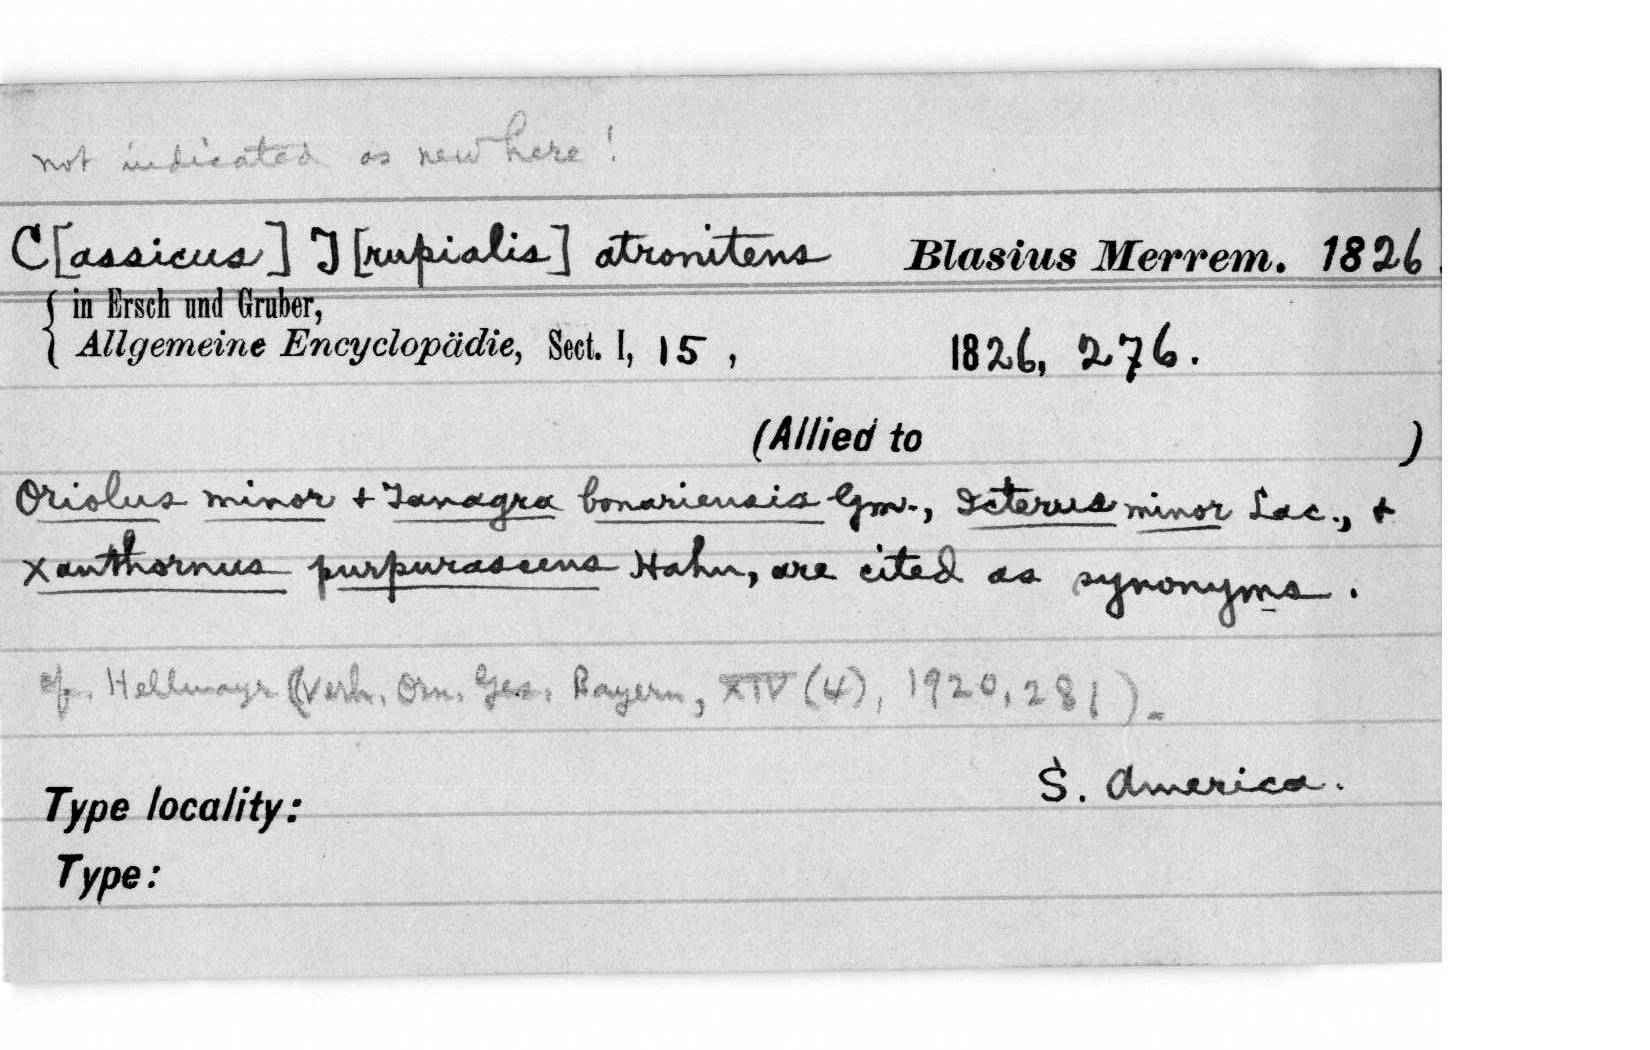 not indicated as new here!
C[assicus] T[rupialis] atronitens Blasius Merrem. 1826.
in Ersch und Gruber,
Allgemeine Encyclopädie, Sect. I, 15, 1826, 276.
(Allied to )
Oriolus minor + Tanagra bonariensis Gm., Icterus minor Lac., +
Xanthornus purpurascens Hahn, are cited as synonyms.
cf. Hellmayr (Verh. Orn. Ges. Bayern, XIV (4), 1920, 281).
S. America.
Type locality:
Type: